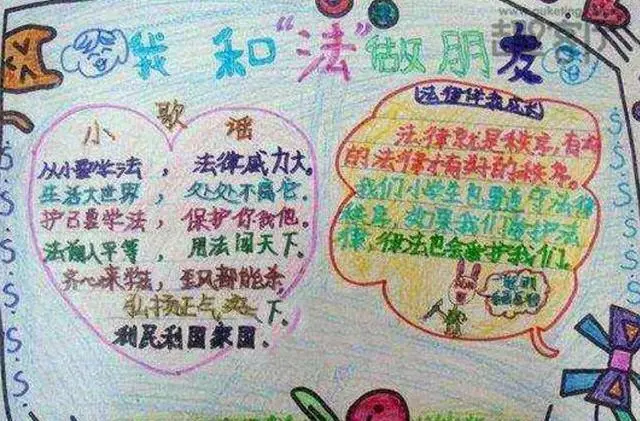 我和“法”做朋友
小歌谣
从小要学法，法律威力大。
生活大世界，处处不离它。
护己要学法，保护你我他。
法前人平等，用法闯天下。
齐心来学法，歪风都能杀
弘扬正气 天下。
利民利国家园。
法律伴我成长
法律就是秩序，有好
的法律才有好的秩序。
我们小学生也要遵守法律
如果我们保护法
律，律法也会爱护我们。